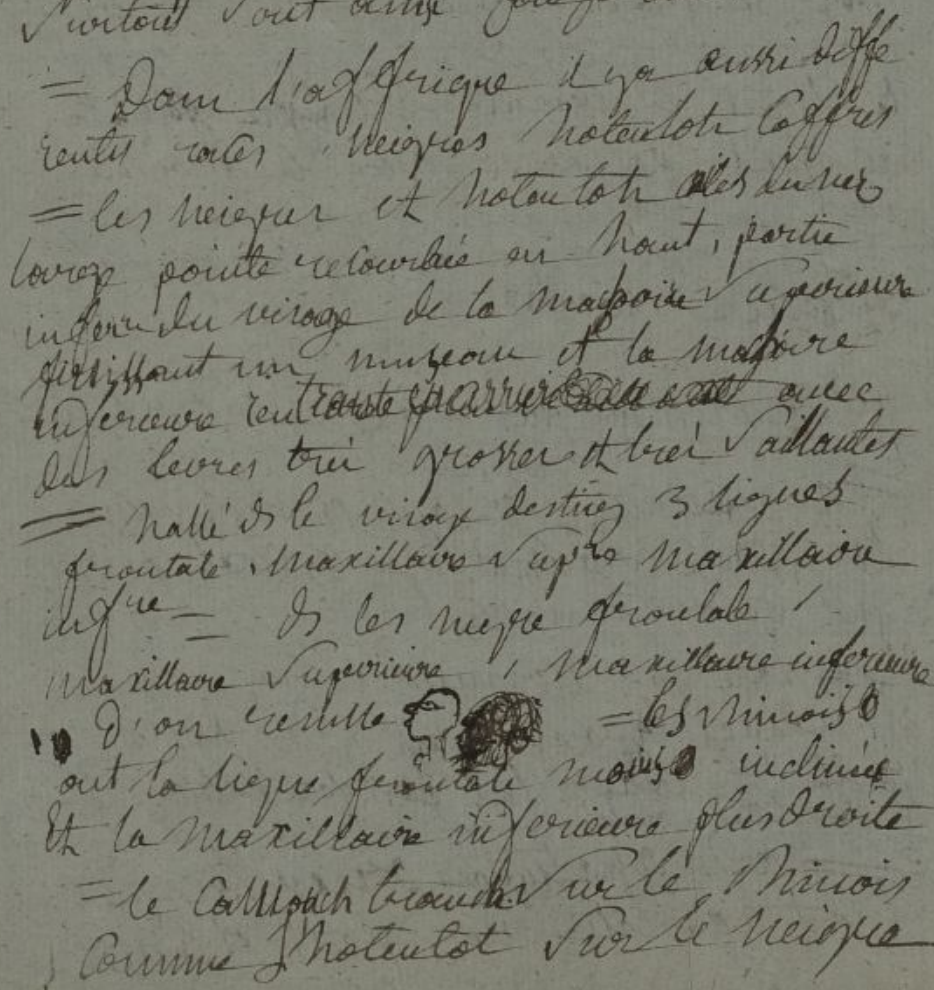 surtout sont
= Dans l'affrique il y a aussi diffe
rentes races Neigres hotentoth Caffres
= les neigres et hotentoth ailes du nez
large pointe retourbée en haut, partie
inferre du visage de la machoire superieure
un museau et la machoire
inferieure rentrante avec
des levres tres grosses et tres saillantes
= hallé ds le visage 3 lignes
frontale, maxillaire supre maxillaire
infre = ds les negre frontale /
maxillaire superieure, maxillaire inferieure
d'ou resulte = les Chinois
ont la ligne frontale moins inclinée
Et la maxillaire inferieure plus droite
= le sur le Chinois
Comme l'hotentot sur le neigre